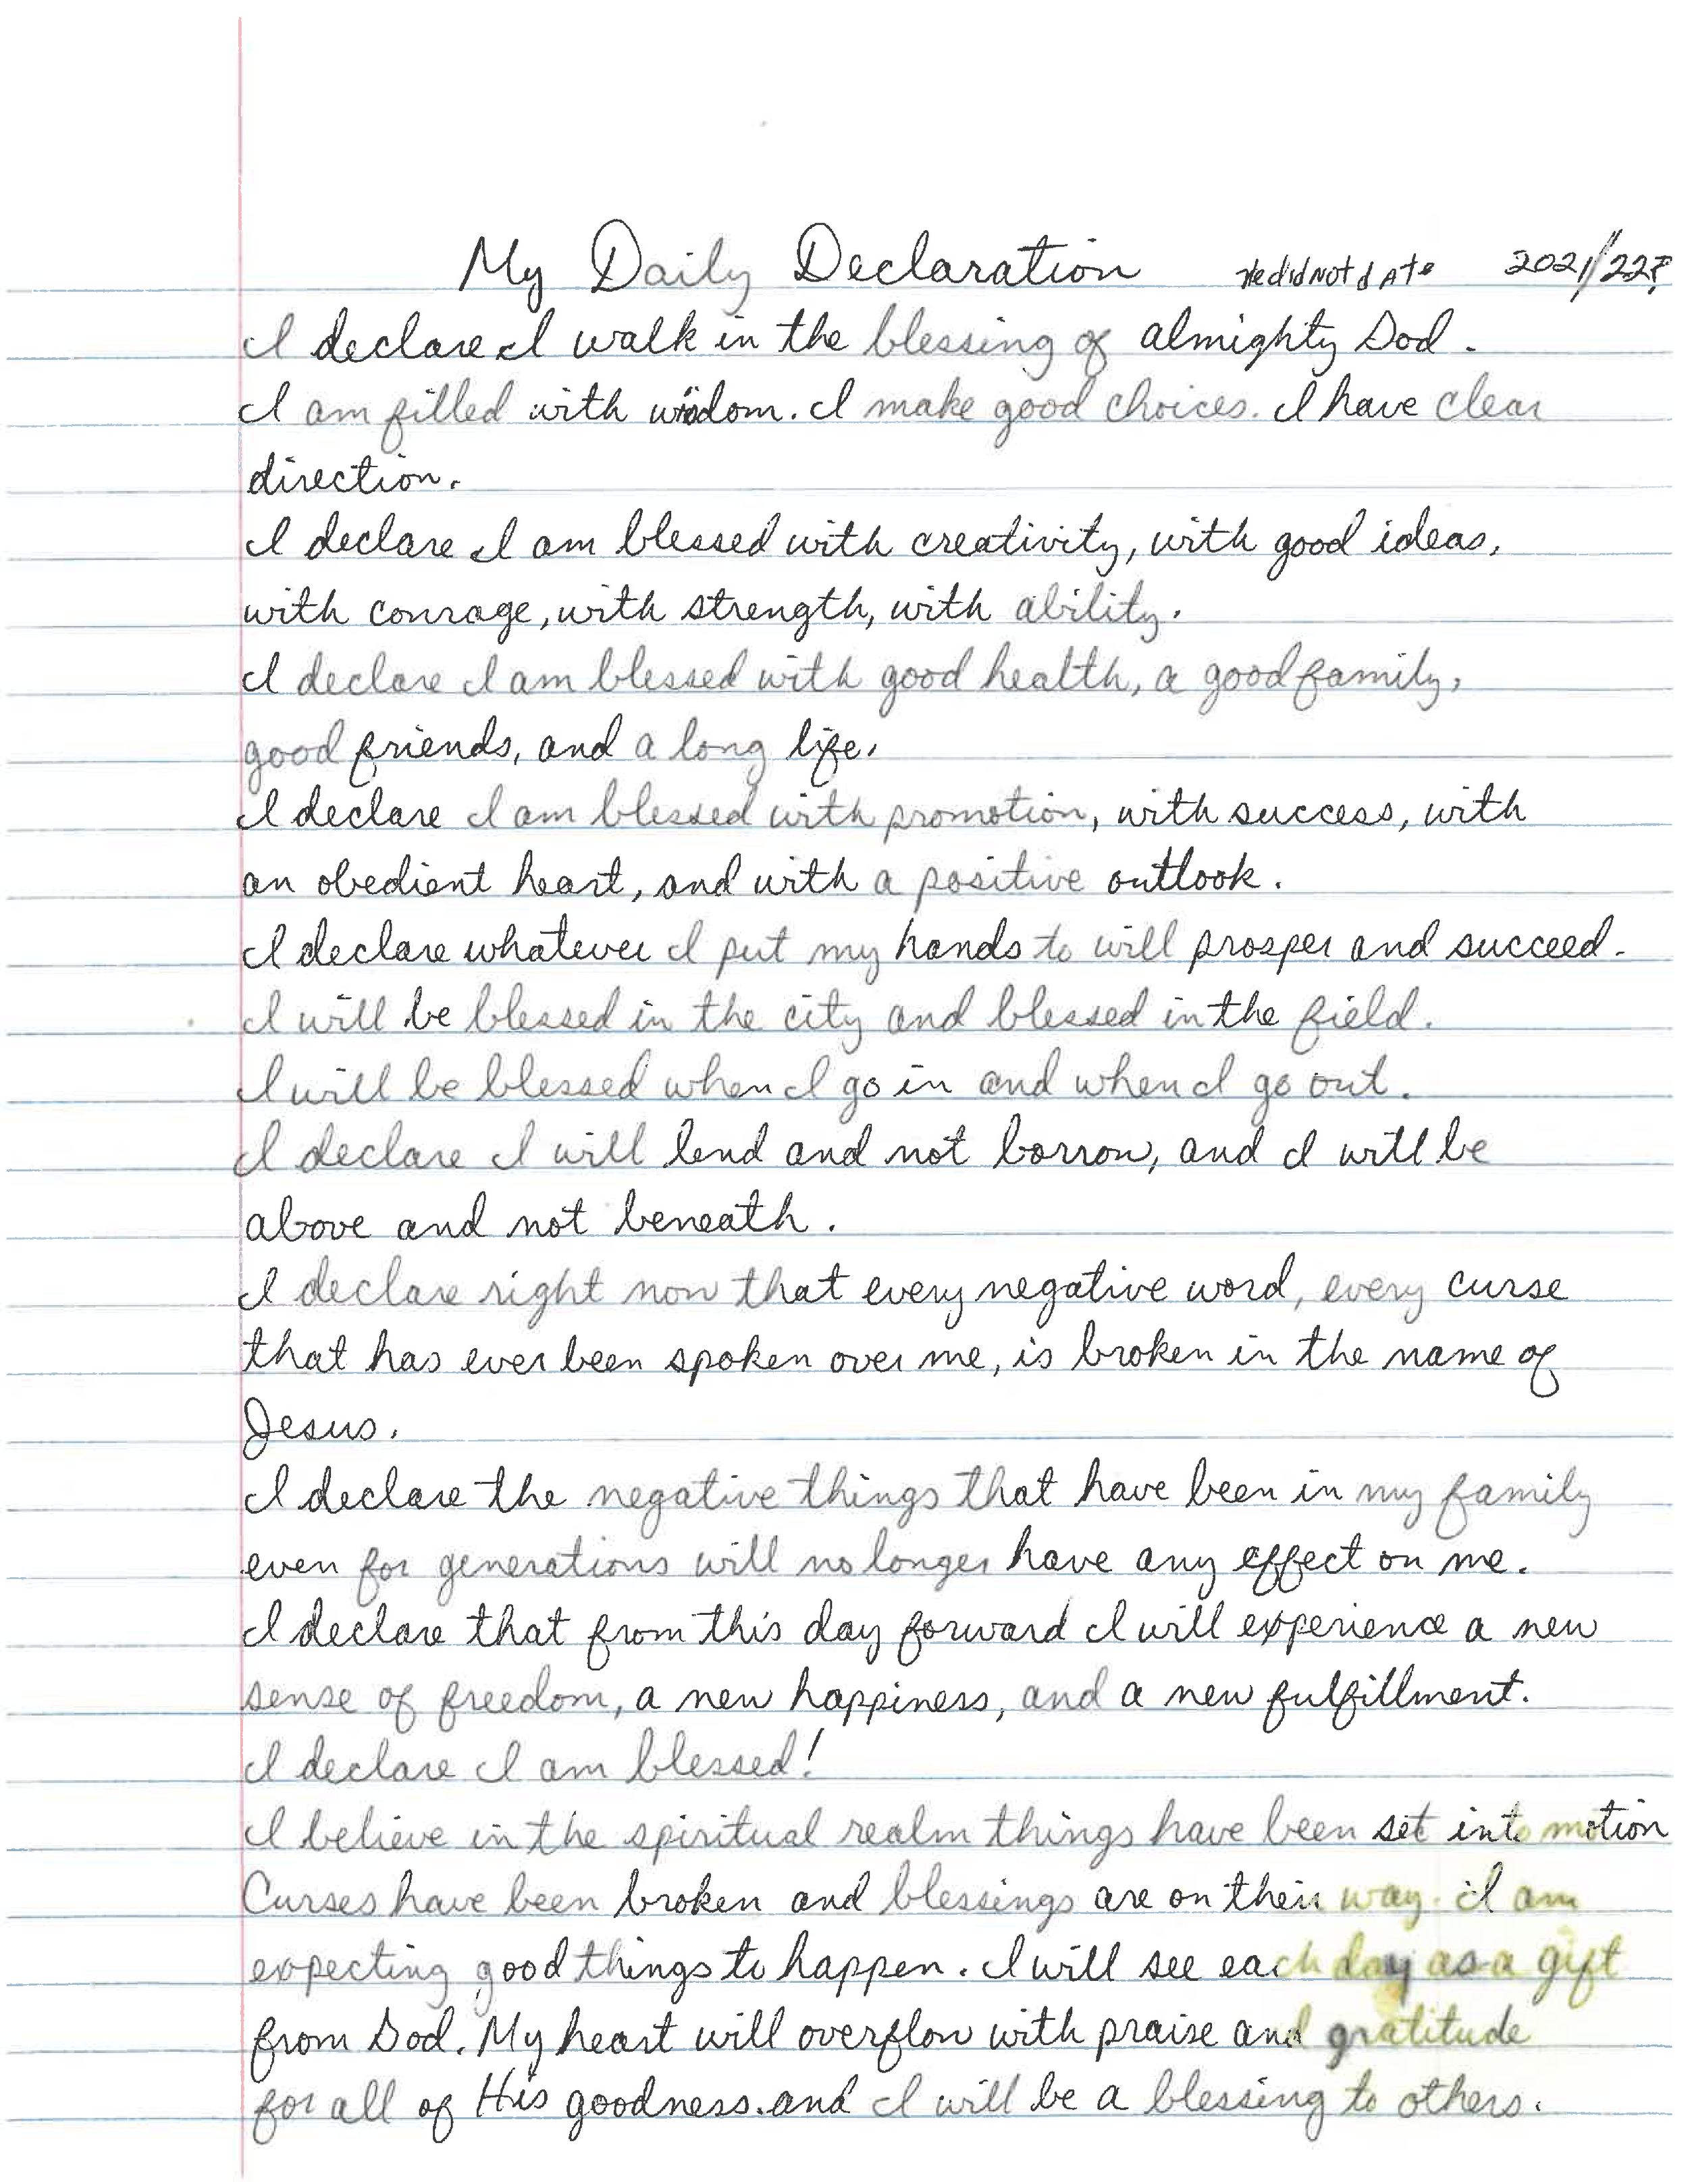 My Daily Declaration He did not date 2021/22?
I declare I walk in the blessing of almighty God.
I am filled with wisdom. I make good choices. I have clear
direction.
I declare I am blessed with creativity, with good ideas,
with courage, with strength, with ability.
I declare I am blessed with good health, a good family,
good friends, and a long life.
I declare I am blessed with promotion, with success, with
an obedient heart, and with a positive outlook.
I declare whatever I put my hands to will prosper and succeed.
I will be blessed in the city and blessed in the field.
I will be blessed when I go in and when I go out.
I declare I will lend and not borrow, and I will be
above and not beneath.
I declare right now that every negative word, every curse
that has ever been spoken over me, is broken in the name of
Jesus.
I declare the negative things that have been in my family
even for generations will no longer have any effect on me.
I declare that from this day forward I will experience a new
sense of freedom, a new happiness, and a new fulfillment.
I declare I am blessed!
I believe in the spiritual realm things have been set into motion
Curses have been broken and blessings are on their way. I am
expecting good things to happen. I will see each day as a gift
from God. My heart will overflow with praise and gratitude
for all of His goodness. and I will be a blessing to others.